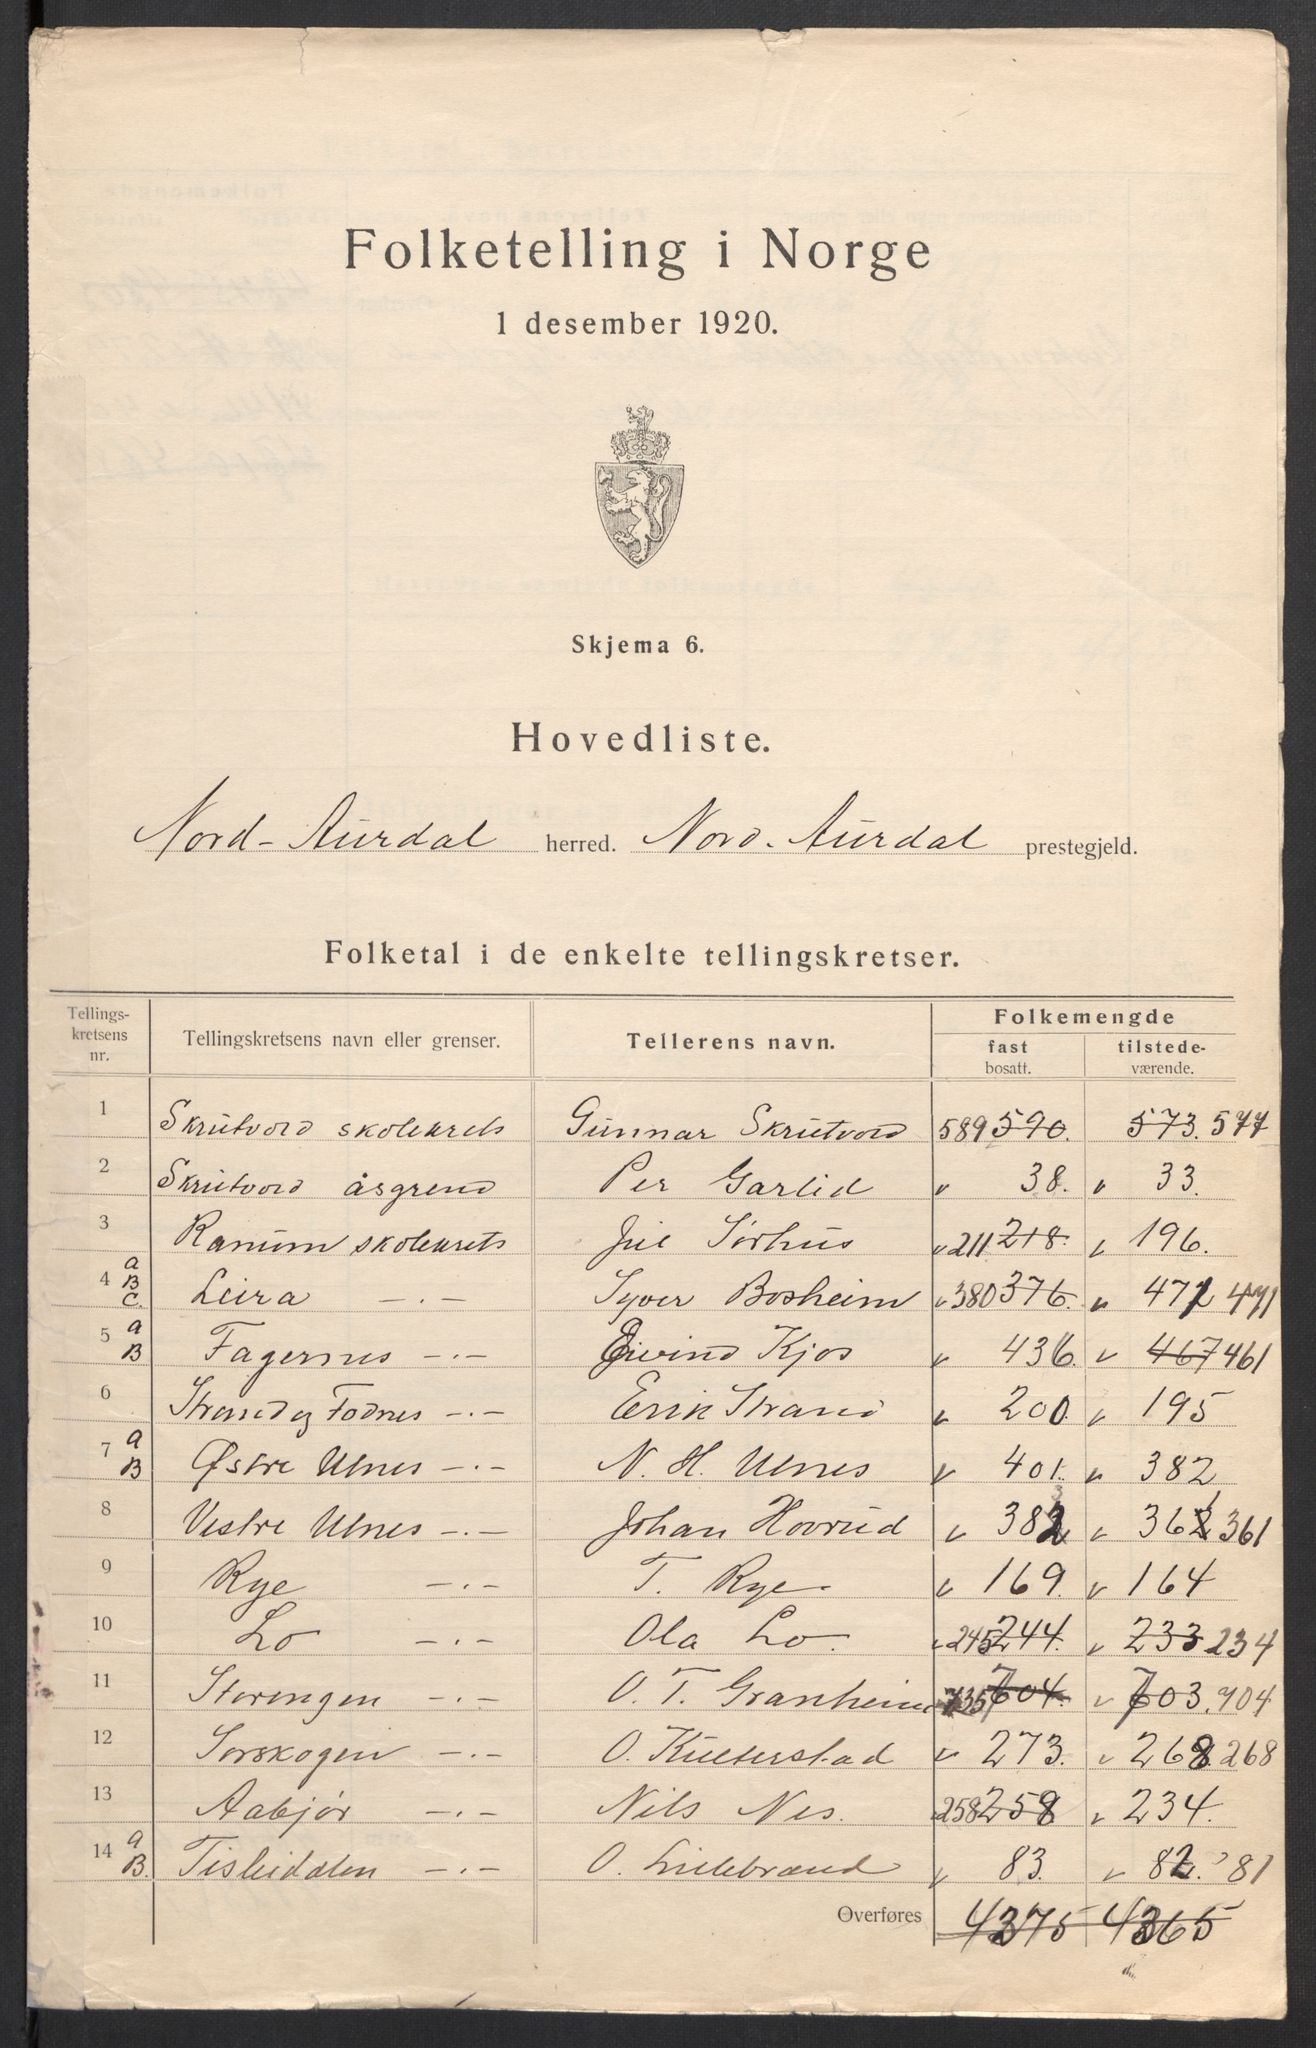 Folketelling i Norge
1 desember 1920.
Skjema 6.
Hovedliste.
Nord-Aurdal herred. Nord-Aurdal prestegjeld.
Folketal i de enkelte tellingskretser.
Tellings-kretsens nr. Tellingskretsens navn eller grenser. Tellerens navn. Folkemengde fast bosatt. tilstede-værende.
1 Skrutvold skolekrets Gunnar Skrutvold 589 590. 573. 577
2 Skrutvold åsgrend Per Garlid 38. 33.
3 Ranum skolekrets Jul Sørhus 211 218. 196.
4 a B C. Leira -.- Syver Bosheim 380 376. 472 471
5 a B Fagernes -.- Eivind Kjos 436. 467 461
6 Strand og Fodnes -.- Erik Strand 200. 195
7 a B Østre Ulnes -.- N. H. Ulnes 401. 382
8 Vestre Ulnes -.- Johan Hovrud 382 3 362 361
9 Rye -.- T. Rye 169. 164
10 Lo -.- Ola Lo. 245 244. 233 234
11 Storengen -.- O. T. Granheim 735 704. 703. 704
12 Sørskogen -.- O. Kulterstad 273. 268. 268
13 Aabjør -.- Nils Nes. 258 258 234.
14 a B. Tisleidalen -.- O. Lillebrænd 83. 82. 81
Overføres 4375 4365